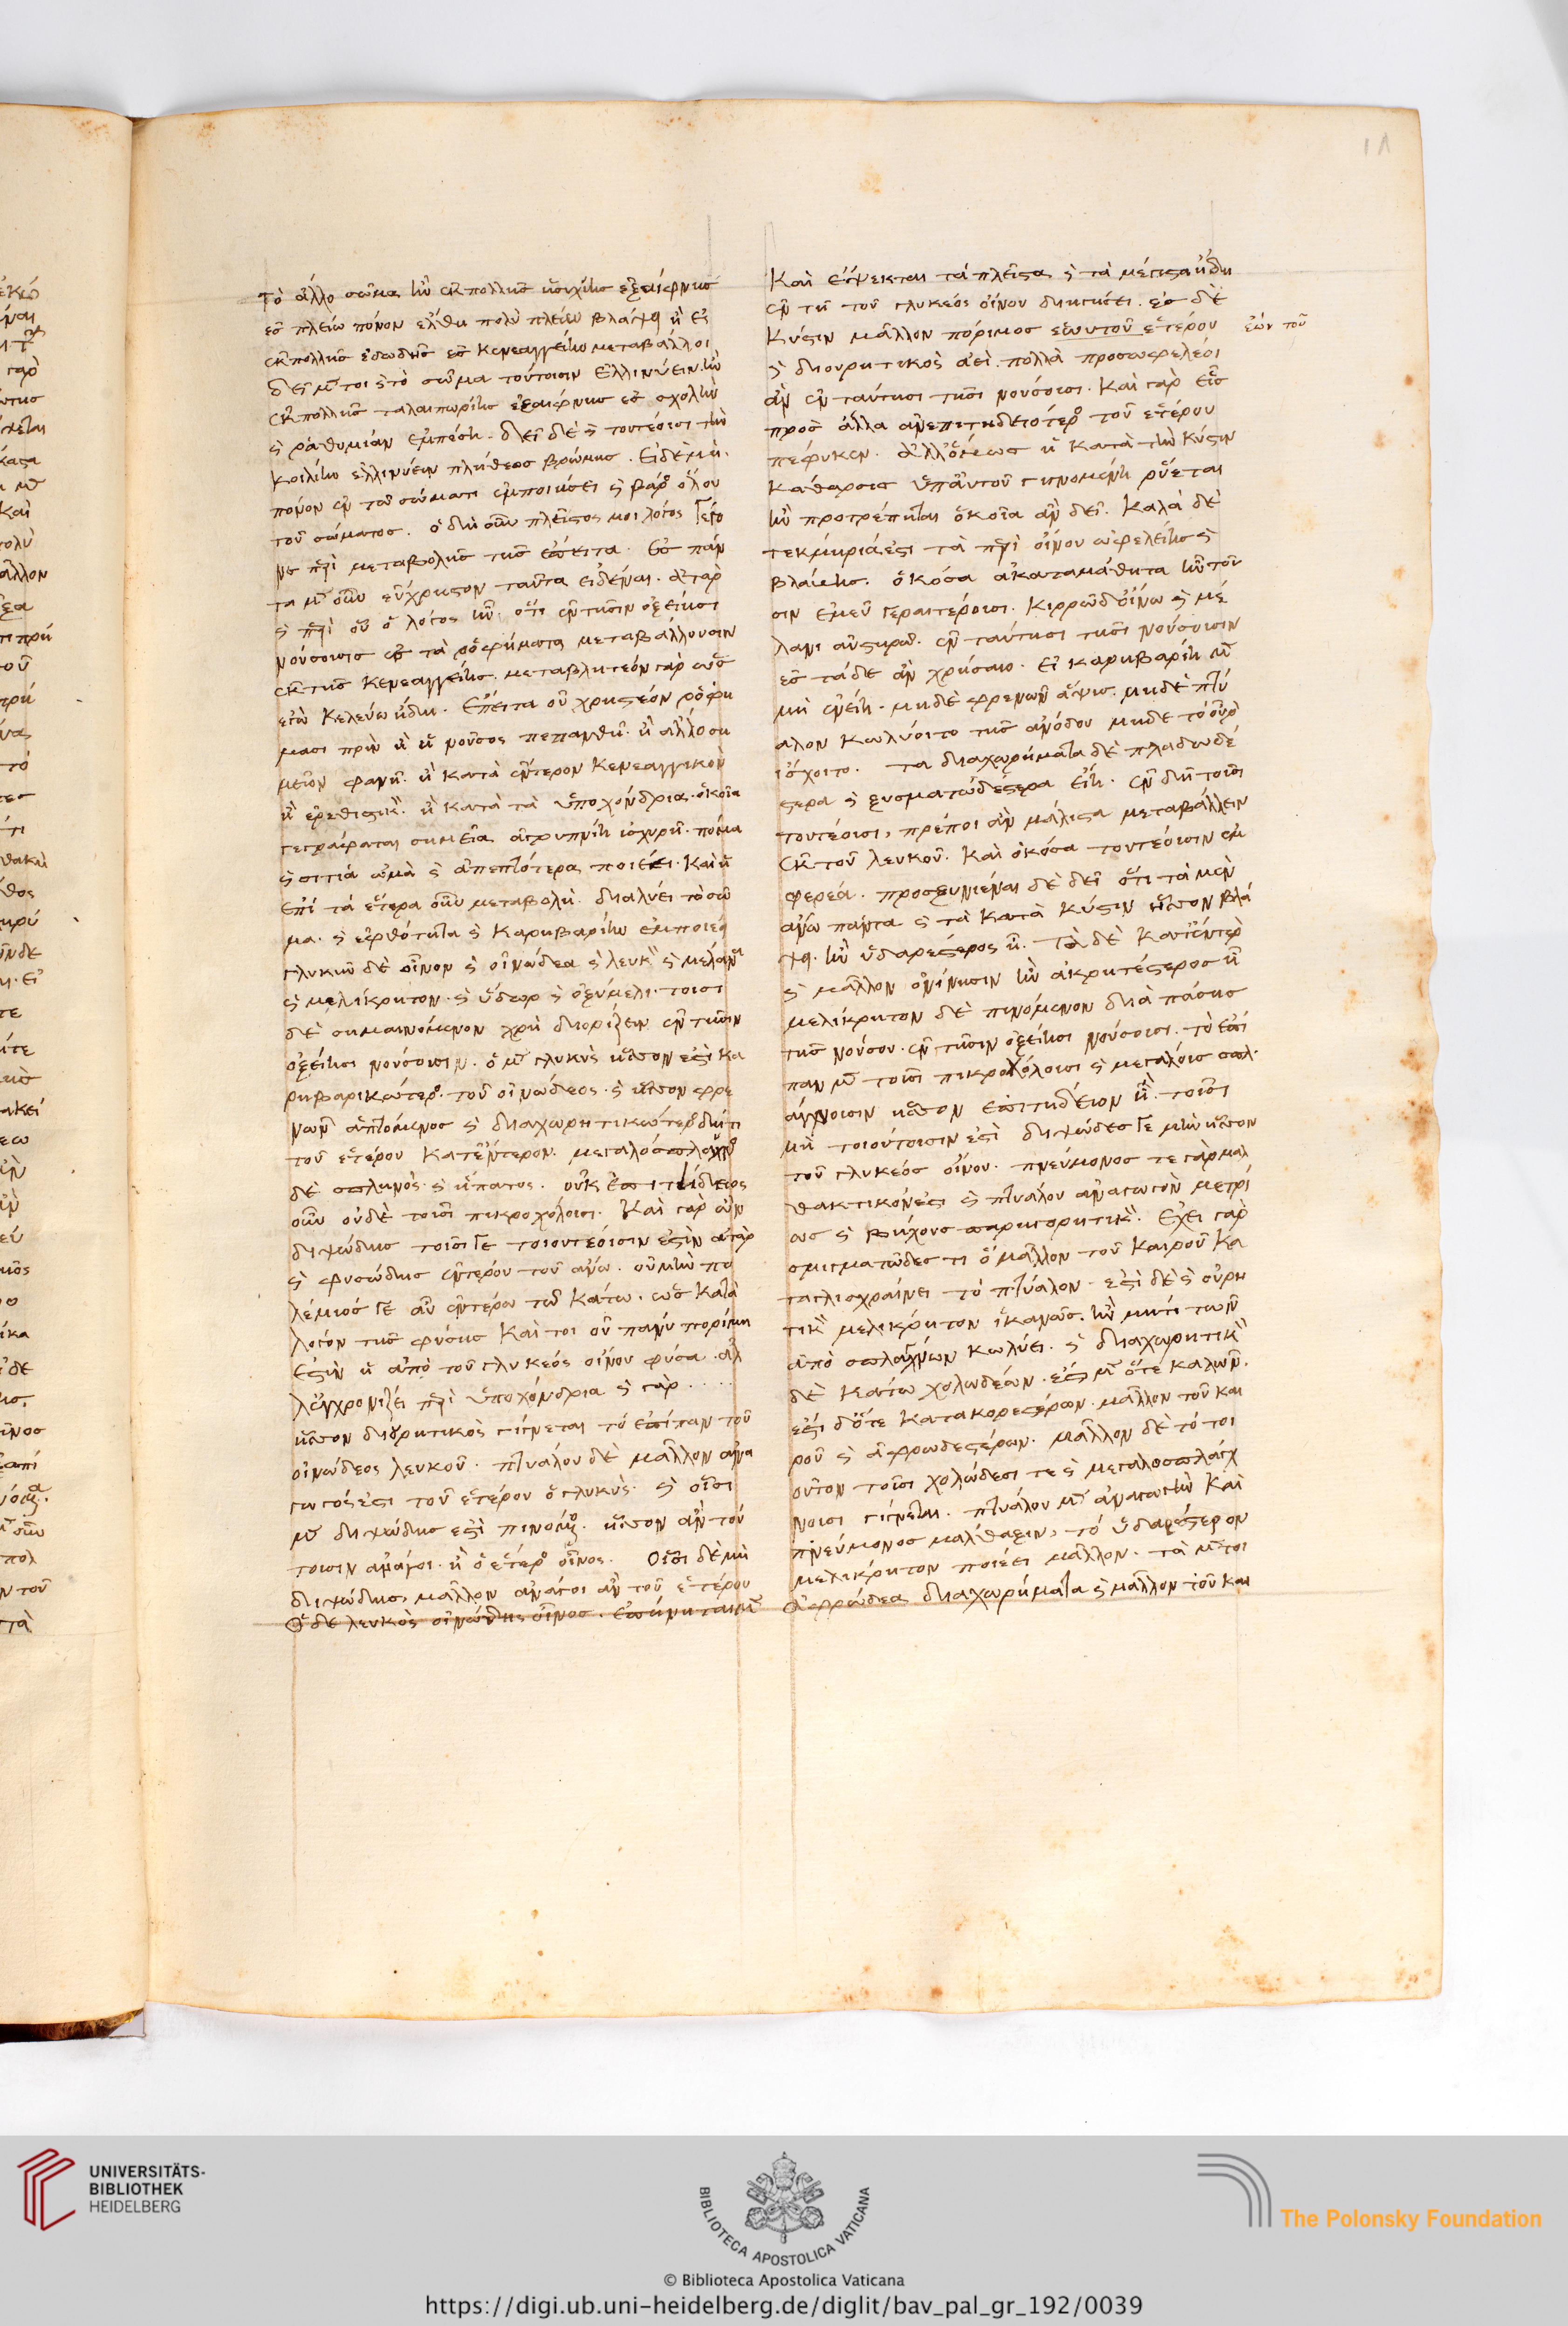 τὸ ἄλλο σῶμα ἢν ἐκ πολλῆς ἡσυχίης ἐξαίφνης
ἐς πλείω πόνον ἔλθῃ πολὺ πλείω βλάψει ἢ εἰ
ἐκ πολλῆς ἐδωδῆς ἐς κενεαγγείην μεταβάλλοι
δεῖ μέντοι καὶ τὸ σῶμα τούτοισιν ἐλλινύειν. ἢν
ἐκ πολλῆς ταλαιπωρίης ἐξαίφνης ἐς σχολὴν
καὶ ῥαθυμίαν ἐμπέσῃ. δεῖ δὲ καὶ τουτέοισι τὴν
κοιλίην ἐλλινύειν πλήθεος βρώμης. εἰ δὲ μή.
πόνον ἐν τῷ σώματι ἐμποιήσει καὶ βάρος ὅλου
τοῦ σώματος. ὁ δὴ οὖν πλεῖστος μοι λόγος γέγο
νε περὶ μεταβολῆς τῆς ἔπειτα. ἐς πάν
τα μὲν οὖν εὔχρηστον ταῦτα εἰδέναι. ἀτὰρ
καὶ περὶ οὗ ὁ λόγος ἦν. ὅτι ἐν τῇσιν ὀξείῃσι
νούσοισιν ἐς τὰ ῥοφήματα μεταβάλλουσιν
ἐκ τῆς κενεαγγείης. μεταβλητέον γὰρ ὡς
ἐγὼ κελεύω ἤδη. ἔπειτα οὐ χρηστέον ῥοφή
μασι πρὶν ἢ ἡ νοῦσος πεπανθῇ. ἢ ἄλλο ση
μεῖον φανῇ. ἢ κατὰ ἔντερον κενεαγγικὸν
ἢ ἐρεθιστικόν. ἢ κατὰ τὰ ὑποχόνδρια. ὁκοῖα
γεγράψεται σημεῖα ἀγρυπνίη ἰσχυρή. πόμα
καὶ σιτία ὠμὰ καὶ ἀπεπτότερα ποιέει. καὶ ἡ
ἐπὶ τὰ ἕτερα οὖν μεταβολή. διαλύει τὸ σῶ
μα. καὶ ἐφθότητα καὶ καρηβαρίην ἐμποιέει
γλυκὺν δὲ οἶνον καὶ οἰνώδεα καὶ λευκὸν καὶ μέλανα
καὶ μελίκρητον. καὶ ὕδωρ καὶ ὀξύμελι. τοισι
δὲ σημαινόμενον χρὴ διορίζειν ἐν τῇσιν
ὀξείῃσι νούσοισιν. ὁ μὲν γλυκὺς ἧσσον ἐστὶ κα
ρηβαρικώτερος. τοῦ οἰνώδεος. καὶ ἧσσον φρε
νῶν ἁπτόμενος καὶ διαχωρητικώτερος δή τι
τοῦ ἑτέρου κατ' ἔντερον. μεγαλόσπλαγχνος
δὲ σπληνὸς καὶ ἥπατος. οὐκ ἐπιτήδειος
οὖν οὐδὲ τοῖσι πικροχόλοισι. καὶ γὰρ οὖν
διψώδης τοῖσί γε τοιουτέοισιν ἐστὶν ἀτὰρ
καὶ φυσώδης ἐντέρου τοῦ ἄνω. οὐ μὴν πο
λέμιός γε ἂν ἐντέρῳ τῷ κάτω. ὡς κατὰ
λόγον τῆς φύσης καί τοι οὐ πάνυ πορίμη
ἐστὶν ἡ ἀπὸ τοῦ γλυκέος οἴνου φύσα. ἀλ
λ' ἐγχρονίζει περὶ ὑποχόνδρια καὶ γὰρ . . . .
ἧσσον διουρητικὸς γίνεται τὸ ἐπίπαν τοῦ
οἰνώδεος λευκοῦ. πτυάλου δὲ μᾶλλον ἀνα
γωγός ἐστι τοῦ ἑτέρου ὁ γλυκύς. καὶ οἷσι
μὲν διψώδης ἐστὶ πινόμενος. ἧσσον ἂν τού
τοισιν ἀνάγοι. ἢ ὁ ἕτερος οἶνος. οἷσι δὲ μὴ
διψώδης, μᾶλλον ἀνάγοι ἂν τοῦ ἑτέρου
ὁ δὲ λευκὸς οἰνώδης οἶνος. ἐπῄνηται μὲν
καὶ ἔψεκται τὰ πλεῖστα καὶ τὰ μέγιστα ἤδη
ἐν τῇ τοῦ γλυκέος οἴνου διηγήσει. ἐς δὲ
κύστιν μᾶλλον πόριμος ἑωυτοῦ ἑτέρου
ἐὼν τοῦ
καὶ διουρητικὸς ἀεὶ. πολλὰ προσωφελέοι
ἂν ἐν ταύτῃσι τῇσι νούσοισι. καὶ γὰρ εἰς
πρὸς ἄλλα ἀνεπιτηδειότερος τοῦ ἑτέρου
πέφυκεν. ἀλλ' ὅμως ἡ κατὰ τὴν κύστιν
κάθαρσις ὑπ' αὐτοῦ γινομένη ῥύεται
ἢν προτρέπηται ὁκοῖα ἂν δεῖ. καλὰ δὲ
τεκμήριά ἐστι τὰ περὶ οἴνου ὠφελείης καὶ
βλάβης. ὁκόσα ἀκαταμάθητα ἦν τοῖ
σιν ἐμεῦ γεραιτέροισι. κιρρῷ δ' οἴνῳ καὶ μέ
λανι αὐστηρῷ. ἐν ταύτῃσι τῇσι νούσοισιν
ἐς τάδε ἂν χρήσαιο. εἰ καρηβαρίη μὲν
μὴ ἐνείη. μηδὲ φρενῶν ἅψις. μηδὲ πτύ
αλον κωλύοιτο τῆς ἀνόδου μηδὲ τὸ οὖρον
ἴσχοιτο. τὰ διαχωρήματα δὲ πλαδωδέ
στερα καὶ ξυσματωδέστερα εἴη. ἐν δὴ τοῖσι
τουτέοισι, πρέποι ἂν μάλιστα μεταβάλλειν
ἐκ τοῦ λευκοῦ. καὶ ὁκόσα τουτέοισιν ἐμ
φερέα. προσξυνιέναι δὲ δεῖ ὅτι τὰ μὲν
ἄνω πάντα καὶ τὰ κατὰ κύστιν ἧσσον βλά
ψει. ἢν ὑδαρέστερος ᾖ. τὰ δὲ κατ' ἔντερον
καὶ μᾶλλον ὀνίνησιν ἢν ἀκρητέστερος ᾖ
μελίκρητον δὲ πινόμενον διὰ πάσης
τῆς νούσου. ἐν τῇσιν ὀξείῃσι νούσοισι. τὸ ἐπί
παν μὲν τοῖσι πικροχόλοισι καὶ μεγαλοισπλ
άγχνοισιν ἧσσον ἐπιτήδειον ἢ. τοῖσι
μὴ τοιούτοισιν ἐστὶ διψῶδές γε μὴν ἧσσον
τοῦ γλυκέος οἴνου. πνεύμονος τε γὰρ μαλ
θακτικόν ἐστι καὶ πτυάλου ἀναγωγὸν μετρί
ως καὶ βηχὸς παρηγορητικόν. ἔχει γὰρ
σμιγματῶδές τι ὃ μᾶλλον τοῦ καιροῦ κα
ταγλισχραίνει τὸ πτύαλον. ἐστὶ δὲ καὶ οὐρη
τικὸν μελίκρητον ἱκανῶς. ἢν μή τι τῶν
ἀπὸ σπλάγχνων κωλύει. καὶ διαχωρητικὸν
δὲ κάτω χολωδέων. ἔστι μὲν ὅτε καλῶν.
ἔστι δ' ὅτε κατακορεστέρων. μᾶλλον τοῦ και
ροῦ καὶ ἀφρωδεστέρων. μᾶλλον δὲ τὸ τοι
οῦτον τοῖσι χολώδεσί τε καὶ μεγαλοσπλάγχ
νοισι γίνεται. πτυάλου μὲν ἀναγωγὴν καὶ
πνεύμονος μάλθαξιν, τὸ ὑδαρέστερον
μελίκρητον ποιέει μᾶλλον. τὰ μέντοι
ἀφρώδεα διαχωρήματα καὶ μᾶλλον τοῦ και
UNIVERSITÄTS-
BIBLIOTHEK
HEIDELBERG
BIBLIOTECA APOSTOLICA VATICANA
The Polonsky Foundation
© Biblioteca Apostolica Vaticana
https://digi.ub.uni-heidelberg.de/diglit/bav_pal_gr_192/0039